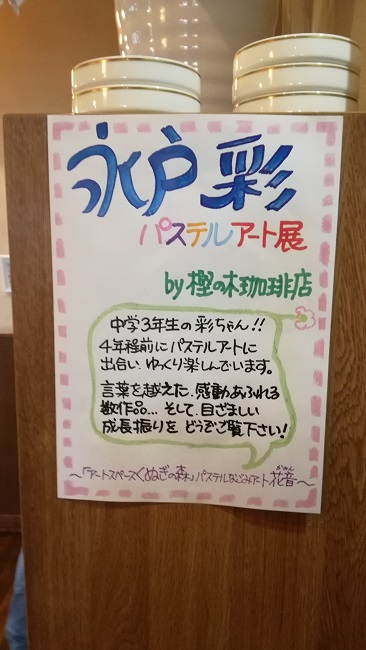 永戸 彩
パステルアート展
by 樫の木珈琲店
中学3年生の彩ちゃん!!
4年程前にパステルアートに
出合い、ゆっくり楽しんでいます。
言葉を越えた、感動あふれる
数作品... そして、目ざましい
成長振りを どうぞご覧下さい!
かのん
～「アートスペースくぬぎの森」パステルなごみアート 花音～